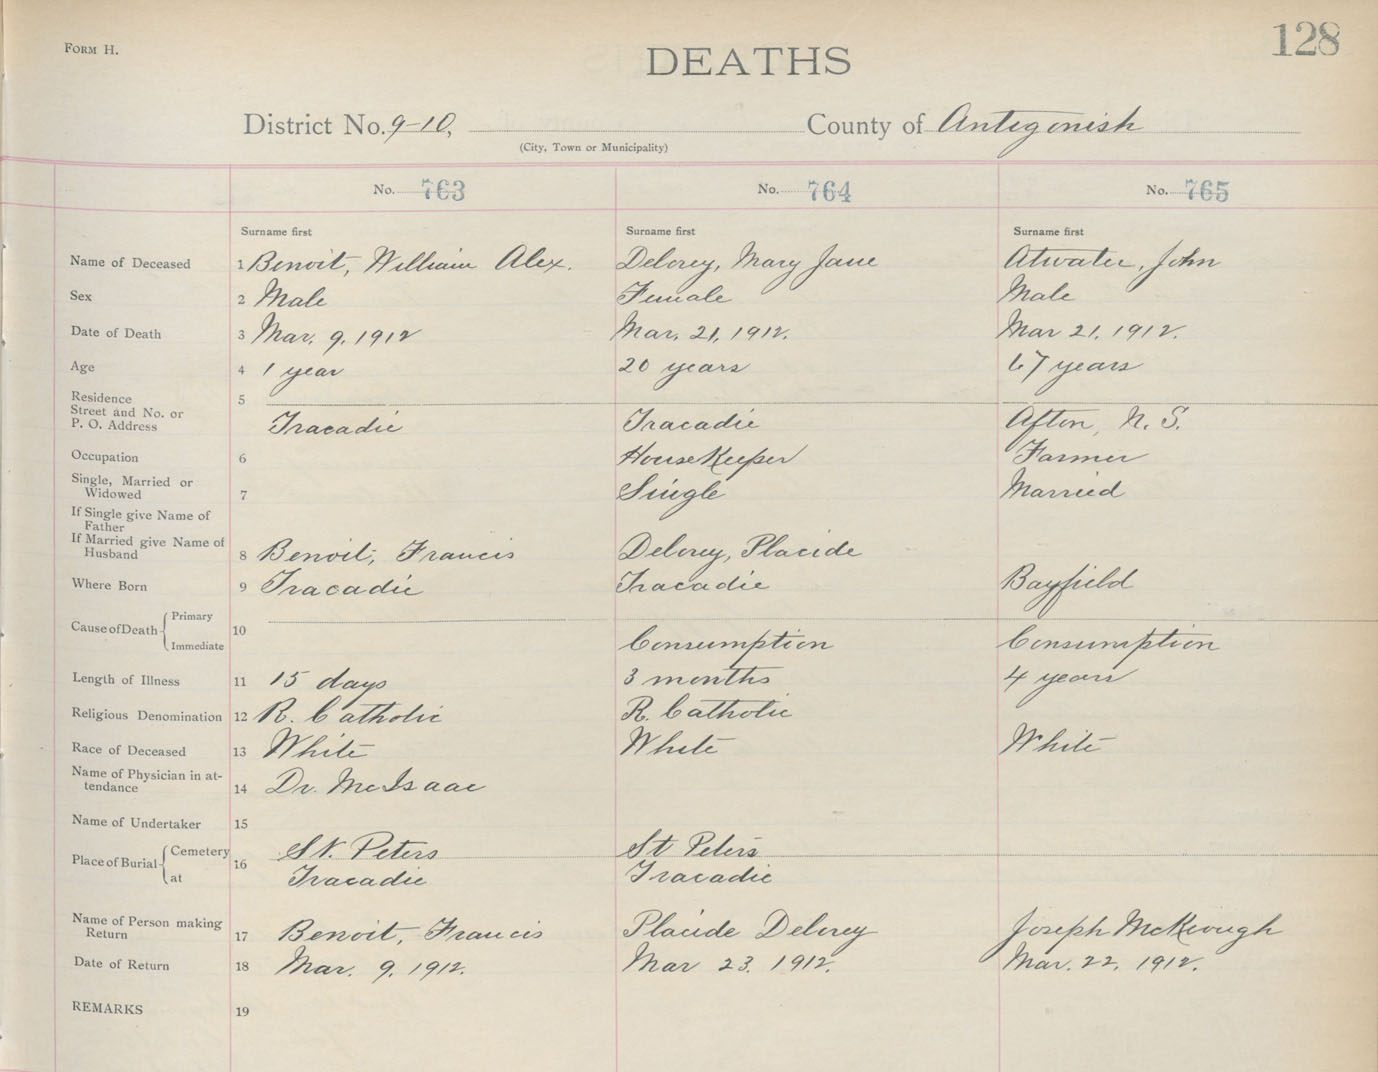 FORM H.
128
DEATHS
District No. 9-10, County of Antigonish
(City, Town or Municipality)
No. 763 No. 764 No. 765
Surname first Surname first Surname first
Name of Deceased 1 Benoit, William Alex. Delorey, Mary Jane Atwater, John
Sex 2 Male Female Male
Date of Death 3 Mar. 9, 1912 Mar. 21, 1912. Mar 21, 1912.
Age 4 1 year 20 years 67 years
Residence 5
Street and No. or
P. O. Address Tracadie Tracadie Afton, N. S.
Occupation 6 HouseKeeper Farmer
Single, Married or
Widowed 7 Single Married
If Single give Name of
Father
If Married give Name of
Husband 8 Benoit, Francis Delorey, Placide
Where Born 9 Tracadie Tracadie Bayfield
Cause of Death Primary
10
Immediate Consumption Consumption
Length of Illness 11 15 days 3 months 4 years
Religious Denomination 12 R. Catholic R. Catholic
Race of Deceased 13 White White White
Name of Physician in at-
tendance 14 Dr. McIsaac
Name of Undertaker 15
Place of Burial Cemetery 16 St. Peters St Peters
at Tracadie Tracadie
Name of Person making
Return 17 Benoit, Francis Placide Delorey Joseph McKeough
Date of Return 18 Mar. 9, 1912. Mar 23. 1912. Mar. 22, 1912.
REMARKS 19